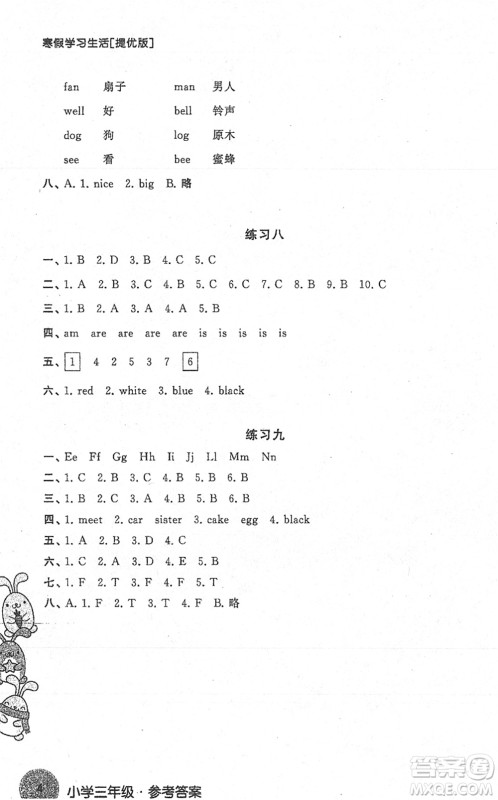 寒假学习生活[提优版]
fan 扇子 man 男人
well 好 bell 铃声
dog 狗 log 原木
see 看 bee 蜜蜂
八、A. 1. nice 2. big B. 略
练习八
一、1. B 2. D 3. B 4. C 5. C
二、1. A 2. B 3. B 4. A 5. C 6. C 7. C 8. B 9. B 10. C
三、1. B 2. A 3. C 4. A 5. B
四、am are are are are is is is is
五、1 4 2 5 3 7 6
六、1. red 2. white 3. blue 4. black
练习九
一、Ee Ff Gg Hh Ii Jj Ll Mm Nn
二、1. C 2. B 3. C 4. B 5. B 6. B
三、1. B 2. C 3. A 4. B 5. A 6. B
四、1. meet 2. car sister 3. cake egg 4. black
五、1. A 2. B 3. C 4. B 5. A
六、1. B 2. C 3. D 4. A
七、1. F 2. T 3. F 4. F 5. T
八、A. 1. F 2. T 3. T 4. F B. 略
4 小学三年级·参考答案